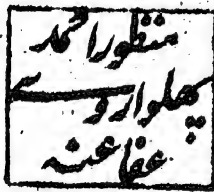 منظور احمد
پھلواروے
عفا عنہ